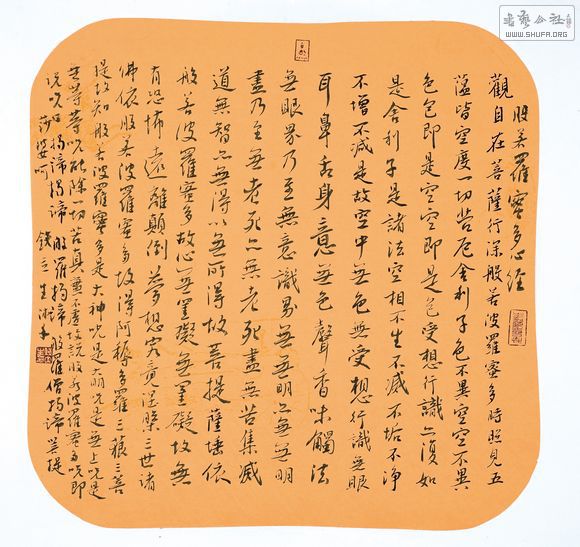 書藝公社
WWW.SHUFA.ORG
般若羅蜜多心經
觀自在菩薩行深般若波羅蜜多時照見五
蘊皆空度一切苦厄舍利子色不異空空不異
色色即是空空即是色受想行識亦復如
是舍利子是諸法空相不生不滅不垢不淨
不增不減是故空中無色無受想行識無眼
耳鼻舌身意無色聲香味觸法
無眼界乃至無意識界無無明亦無無明
盡乃至無老死亦無老死盡無苦集滅
道無智亦無得以無所得故菩提薩埵依
般若波羅蜜多故心無罣礙無罣礙故無
有恐怖遠離顛倒夢想究竟涅槃三世諸
佛依般若波羅蜜多故得阿耨多羅三藐三菩
提故知般若波羅蜜多是大神咒是大明咒是無上咒是
無等等咒能除一切苦真實不虛故說般若波羅蜜多咒即
說咒曰揭諦揭諦般羅揭諦般羅僧揭諦菩提
莎婆呵 錢立生